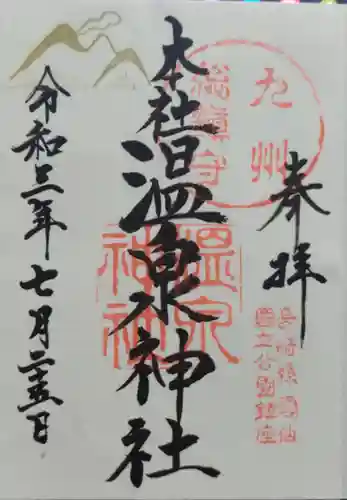 奉拝
九州
総鎮守
長崎県雲仙
国立公園鎮座
本社温泉神社
温泉
神社
令和三年七月二十五日